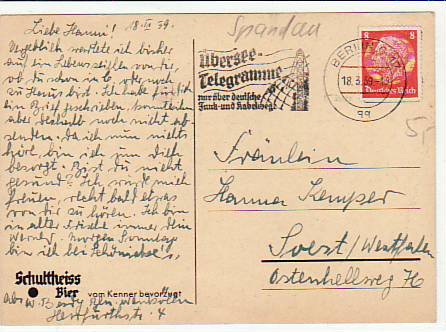 Liebe Hanni! 18.III.39.
Vergeblich wartete ich bisher
auf ein Lebenszeichen von dir,
ob du schon in B. oder noch
zu Haus bist. Ich habe für dich
ein Brief geschrieben,
aber deshalb noch nicht ab-
senden. Da ich nun nichts
höre, bin ich um dich
besorgt. Bist du nicht
gesund? Ich würde mich
freuen, recht bald etwas
von dir zu hören. Ich bin
in alter Frische immer dein
Werner. Morgen Sonntag
bin ich bei
Schultheiss
Bier vom Kenner bevorzugt
Abs. W. Berlin
Herfurthstr. 4
Spandau
Übersee-
Telegramme
nur über deutsche
Funk- und Kabelwege
BERLIN
18.3.39
8 8
Deutsches Reich
5,-
Fräulein
Hanna Kemper
Soest/Westfalen
Ostenhellweg 76